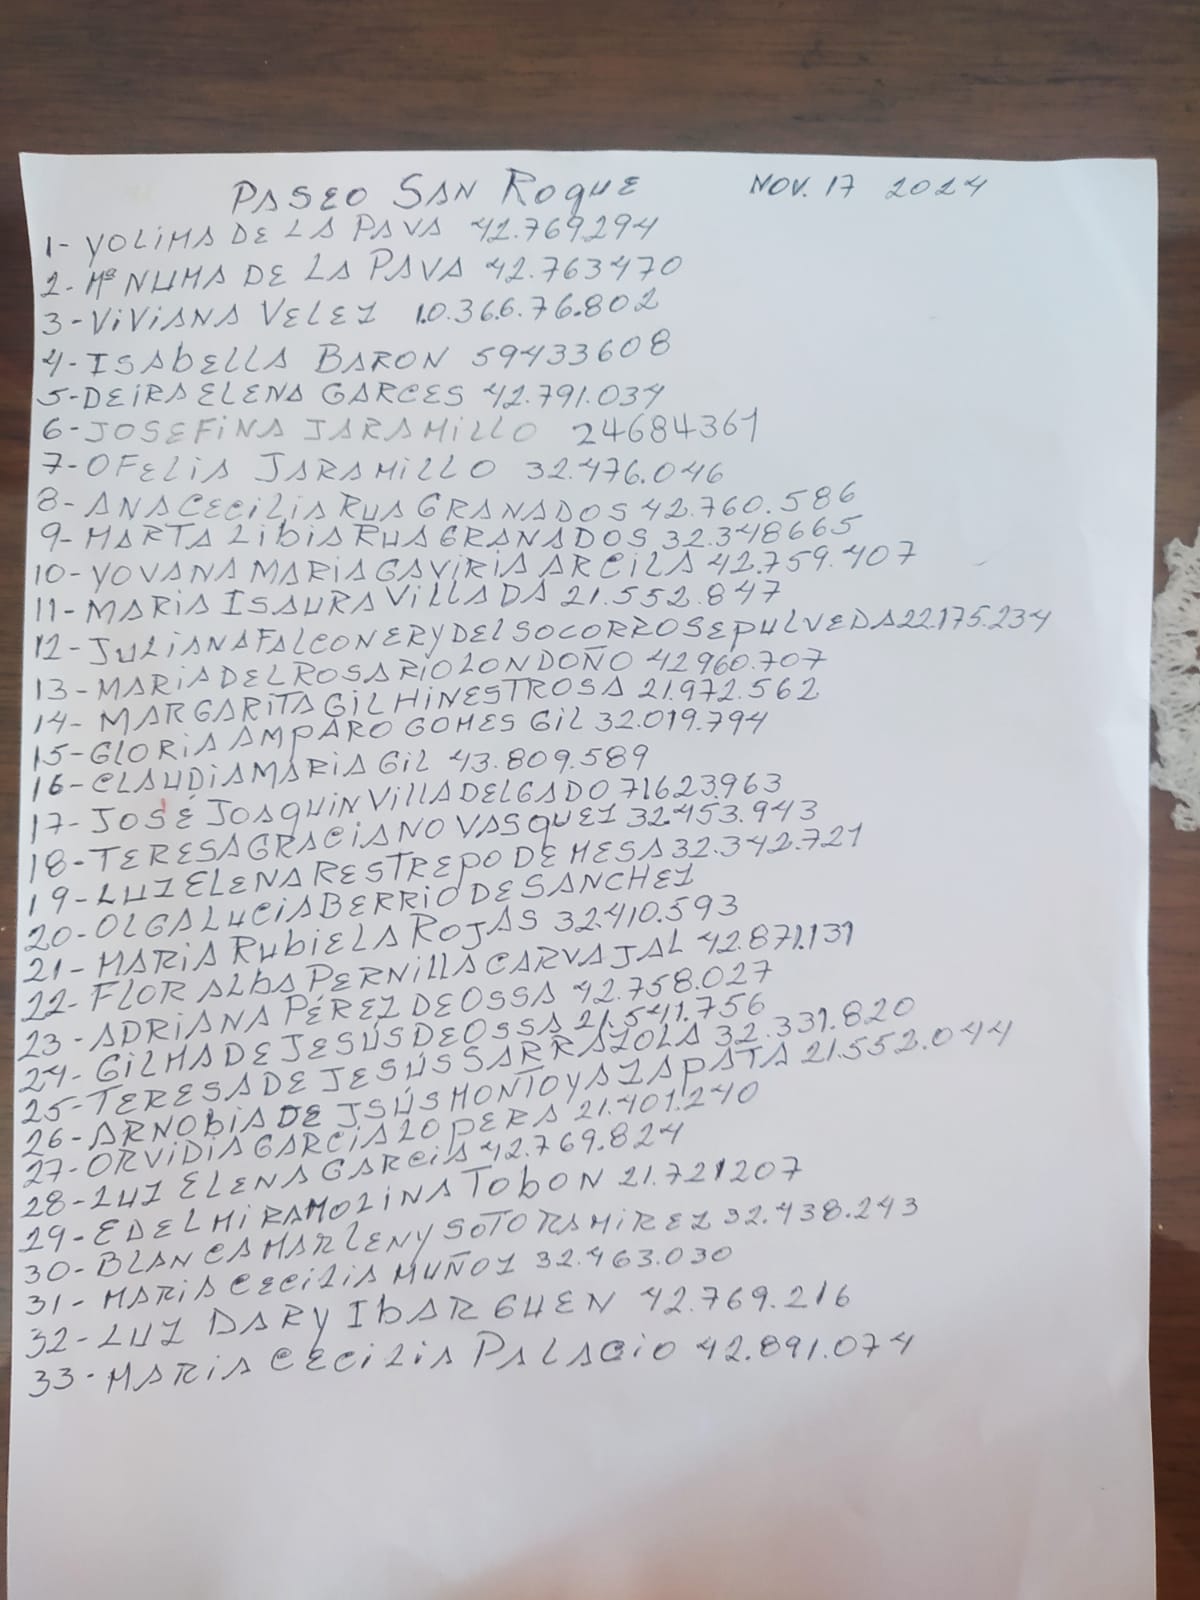 PASEO SAN ROQUE NOV. 17 2024
1- YOLIMA DE LA PAVA 42.769294
2- Mª NUMA DE LA PAVA 42.763470
3- VIVIANA VELEZ 1.0.36.6.76.802
4- ISABELLA BARON 59433608
5- DEIRA ELENA GARCES 42.791.034
6- JOSEFINA JARAMILLO 24684361
7- OFELIA JARAMILLO 32.476.046
8- ANA CECILIA RUA GRANADOS 42.760.586
9- MARTA LIBIA RUA GRANADOS 32.348665
10- YOVANA MARIA GAVIRIA ARCILA 42.759.407
11- MARIA ISAURA VILLADA 21.552.847
12- JULIANA FALCONERY DEL SOCORRO SEPULVEDA 22.175.234
13- MARIA DEL ROSARIO LONDOÑO 42960.707
14- MARGARITA GIL HINESTROSA 21.972.562
15- GLORIA AMPARO GOMES GIL 32.019.794
16- CLAUDIA MARIA GIL 43.809.589
17- JOSÉ JOAQUIN VILLA DELGADO 71623.963
18- TERESA GRACIANO VASQUEZ 32.453.943
19- LUZ ELENA RESTREPO DE MESA 32.342.721
20- OLGA LUCIA BERRIO DE SANCHEZ
21- MARIA RUBIELA ROJAS 32.410.593
22- FLOR ALBA PERNILLA CARVAJAL 42.871.131
23- ADRIANA PÉREZ DE OSSA 42.758.027
24- GILMA DE JESÚS DE OSSA 21.541.756
25- TERESA DE JESÚS SARRAZOLA 32.331.820
26- ARNOBIA DE JSÚS MONTOYA ZAPATA 21.552.044
27- ORVIDIA GARCIA LOPERA 21.401.240
28- LUZ ELENA GARCIA 42.769.824
29- EDELMIRA MOLINA TOBON 21.721207
30- BLANCA MARLENY SOTO RAMIREZ 32.438.243
31- MARIA CECILIA MUÑOZ 32.463.030
32- LUZ DARY IBARGUEN 42.769.216
33- MARIA CECILIA PALACIO 42.891.074